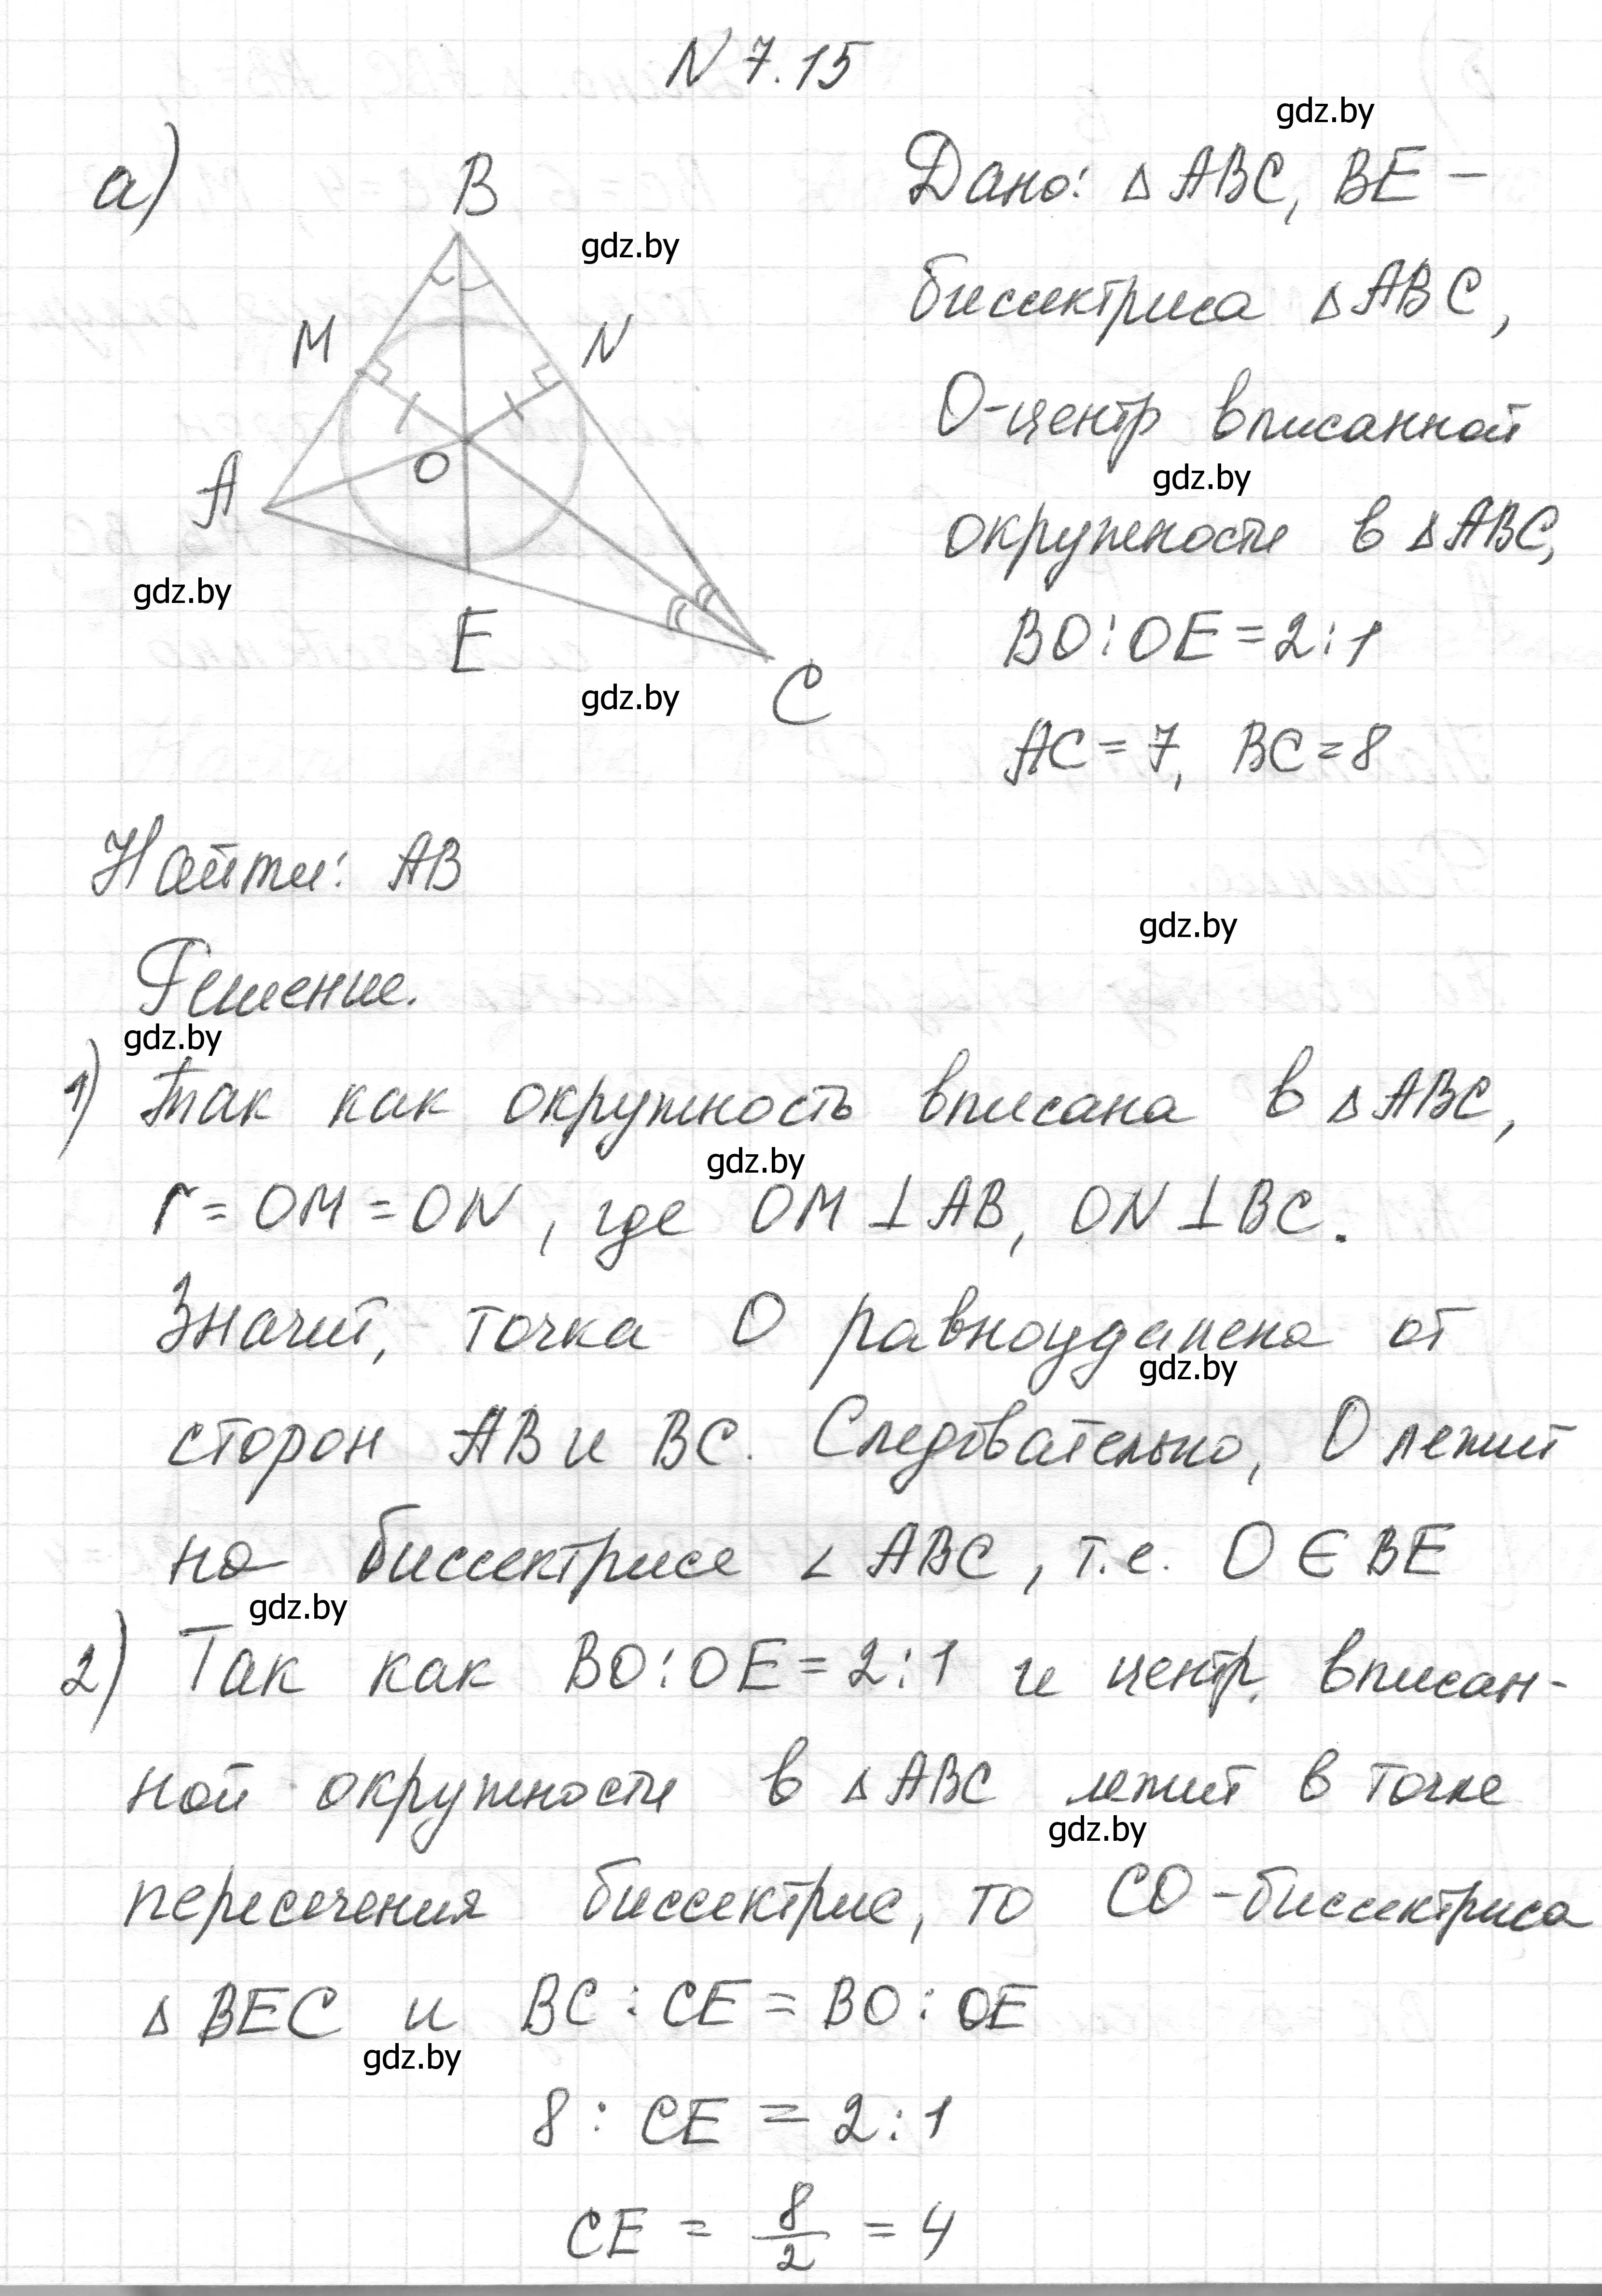 N 7.15
gdz.by
а)
B
Дано: △ ABC, BE –
gdz.by
биссектриса △ ABC,
M
N
О-центр вписанной
O
gdz.by
A
окружности в △ ABC,
gdz.by
E
BO:OE=2:1
gdz.by
C
AC = 7, BC = 8
Найти: AB
gdz.by
Решение.
gdz.by
1) Так как окружность вписана в △ ABC,
gdz.by
r = OM = ON, где OM ⊥ AB, ON ⊥ BC.
Значит, точка O равноудалена от
gdz.by
сторон AB и BC. Следовательно, O лежит
на биссектрисе ∠ ABC, т.е. O ∈ BE
gdz.by
2) Так как BO:OE = 2:1 и центр вписан-
ной окружности в △ ABC лежит в точке
gdz.by
пересечения биссектрис, то CO -биссектриса
△ BEC и BC : CE = BO : OE
gdz.by
8 : CE = 2 : 1
CE = 8/2 = 4